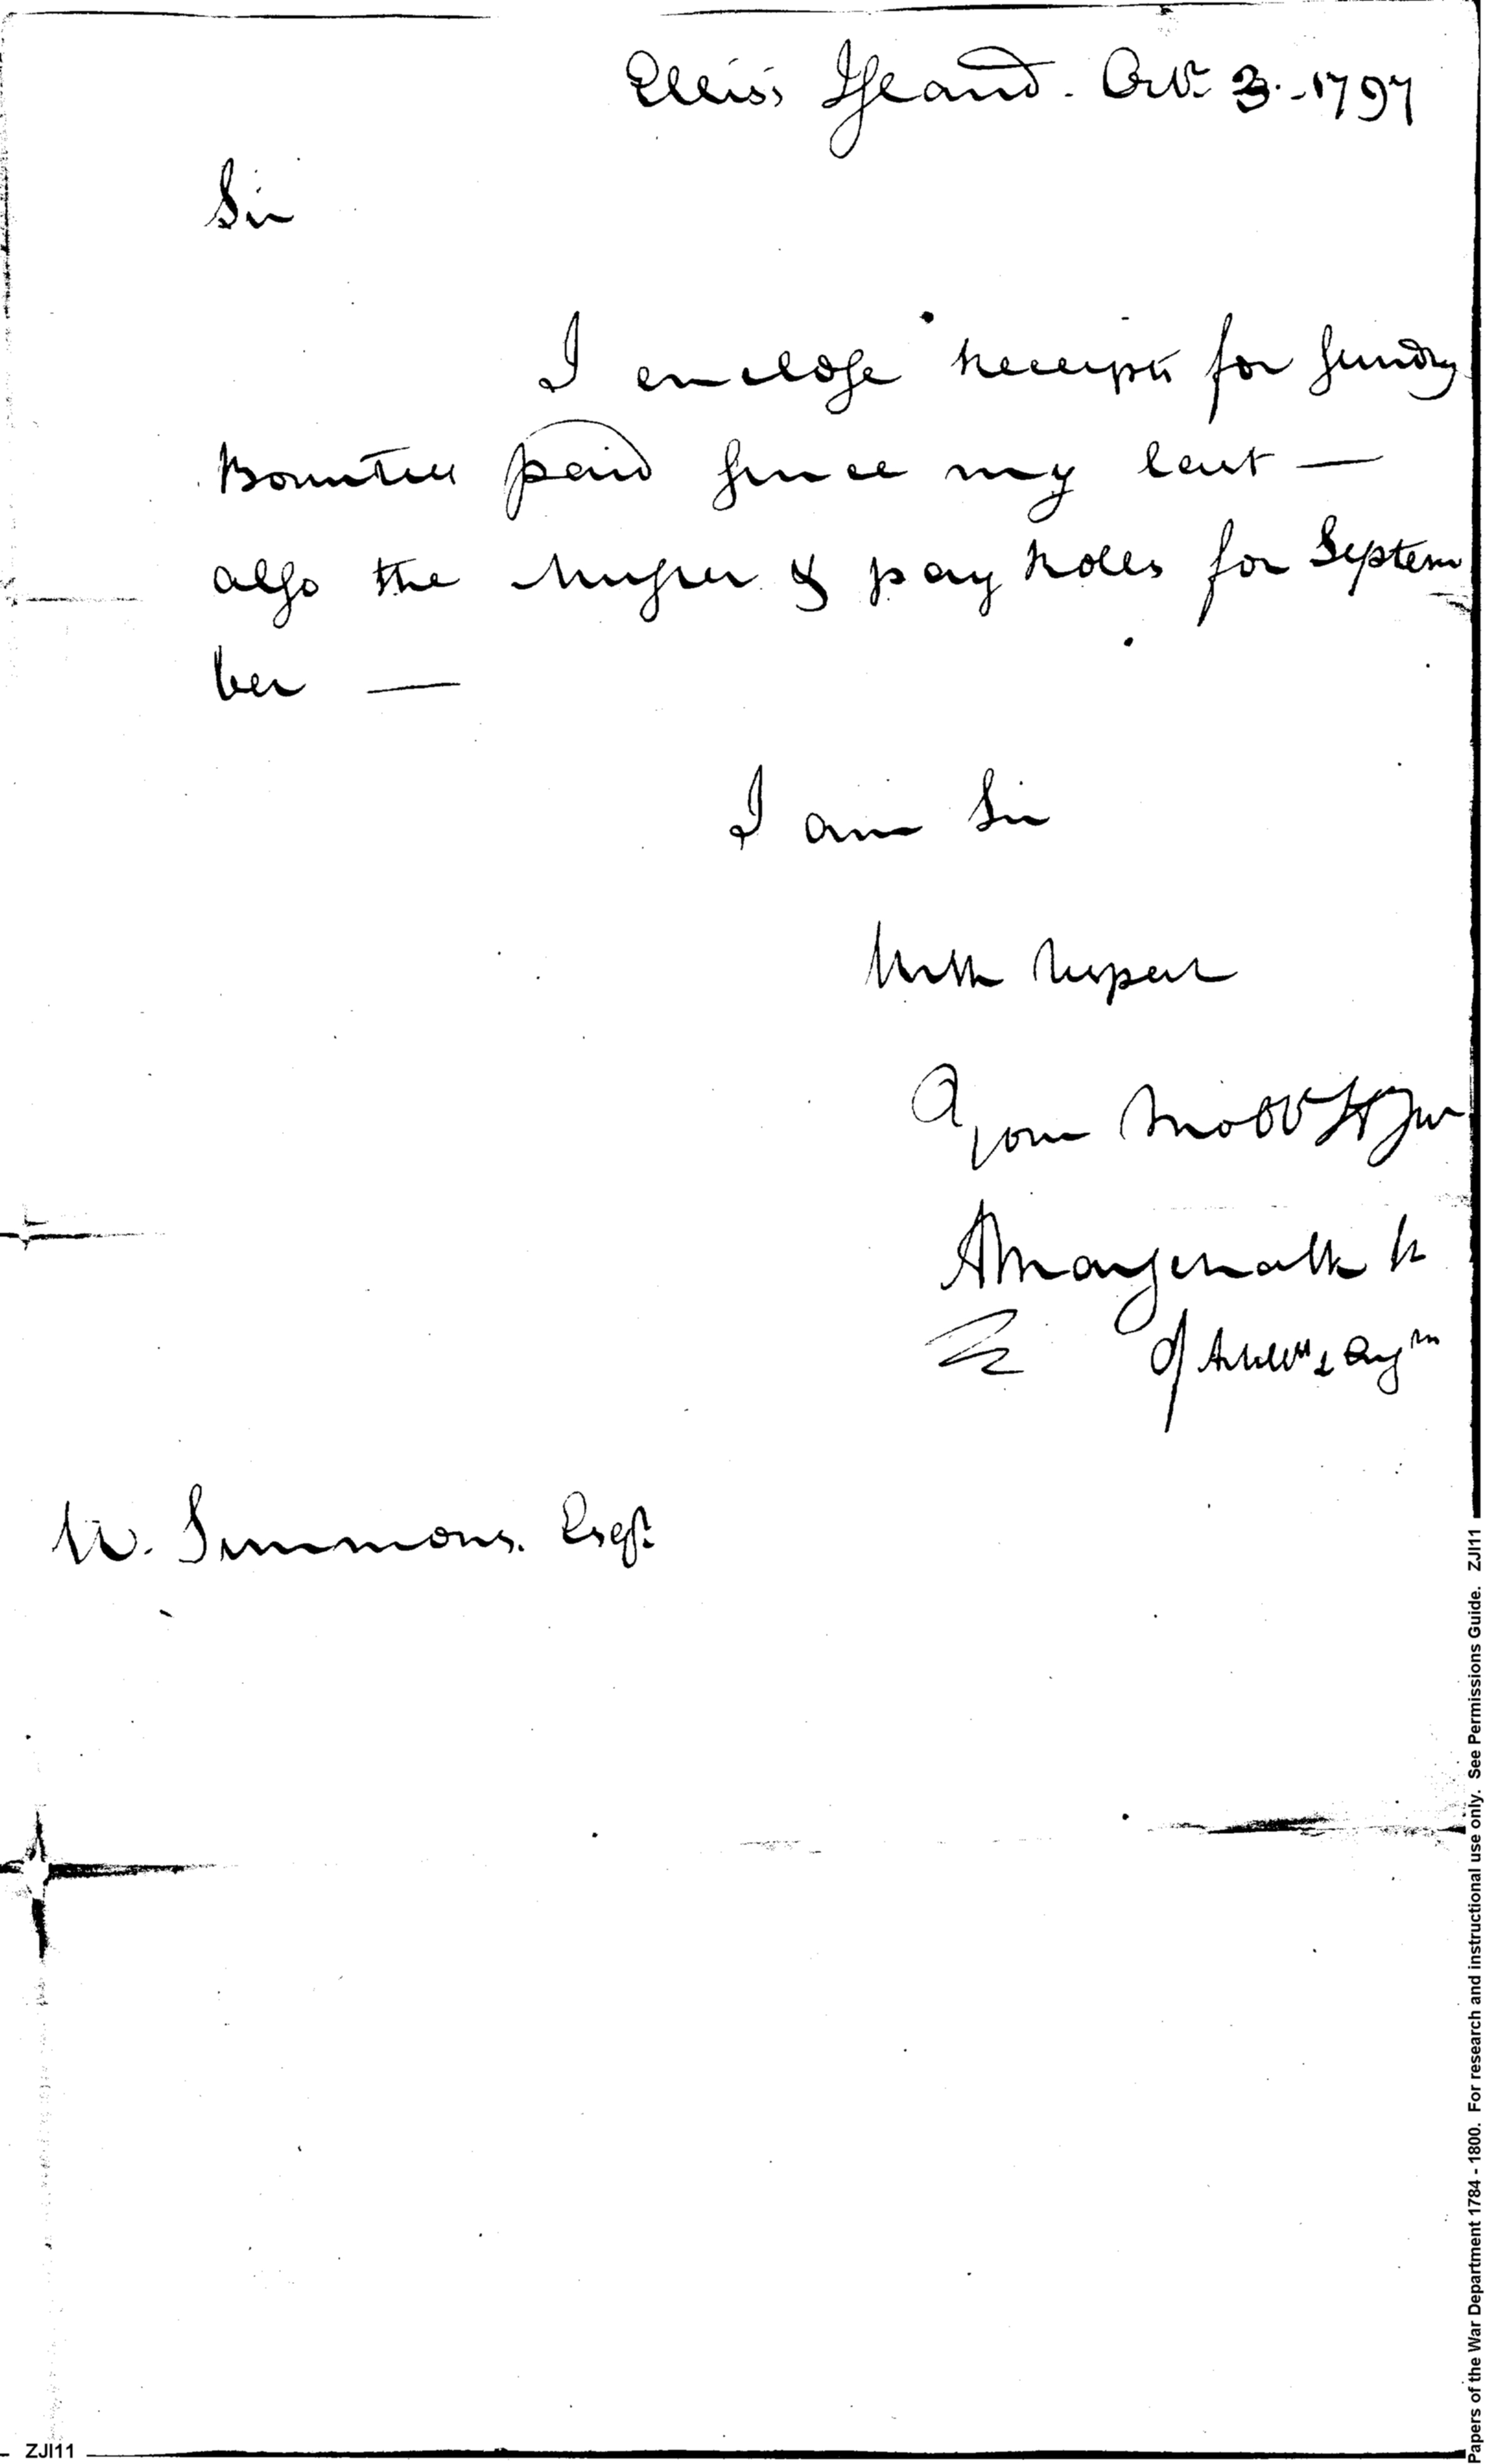 Ellis's Island. Octr. 3. - 1797
Sir
I enclose receipts for sundry
Bounties paid since my last —
also the Muster & pay Rolls for Septem
ber —
I am Sir
With respect
your Mo Obt
of Artillts & Engrs
W. Simmons. Esqr.
Papers of the War Department 1784 - 1800. For research and instructional use only. See Permissions Guide. ZJI11
ZJI11